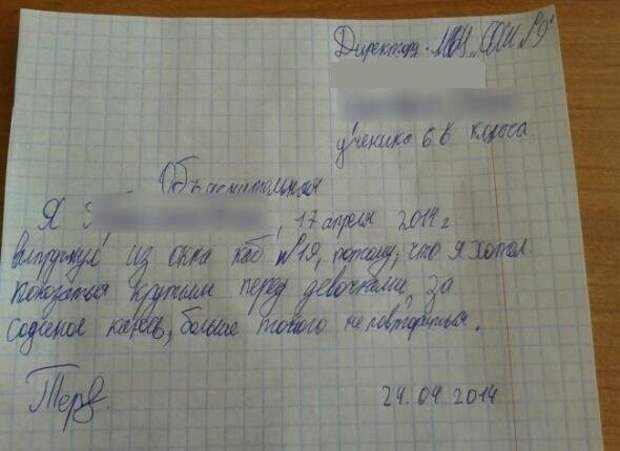 Директору МОУ „СОШ №9"
ученика 6 в класса
Объяснительная
Я , 17 апреля 2014 г
выпрыгнул из окна каб №19, потому, что я хотел
показаться крутым перед девочками, за
содееное каюсь, больше такого не повториться.
24.04 2014